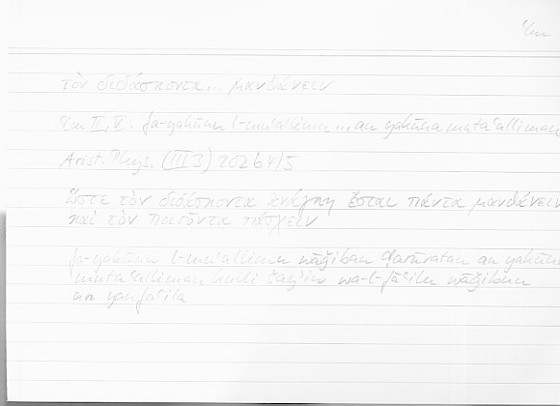 τὸν διδάσκοντα... μανθάνειν
II, V: fa-yakūnu l-muʿallimu ... an yakūna mutaʿalliman
Arist. Phys. (III 3) 202 b 4/5
ὥστε τὸν διδάσκοντα ἀνάγκη ἔσται πάντα μανθάνειν
καὶ τὸν ποιοῦντα πάσχειν
fa-yakūnu l-muʿallimu wāǧiban ḍarūratan an yakūna
mutaʿalliman li-kulli šayʾin wa-l-fāʿilu wāǧiban
an yanfaʿila